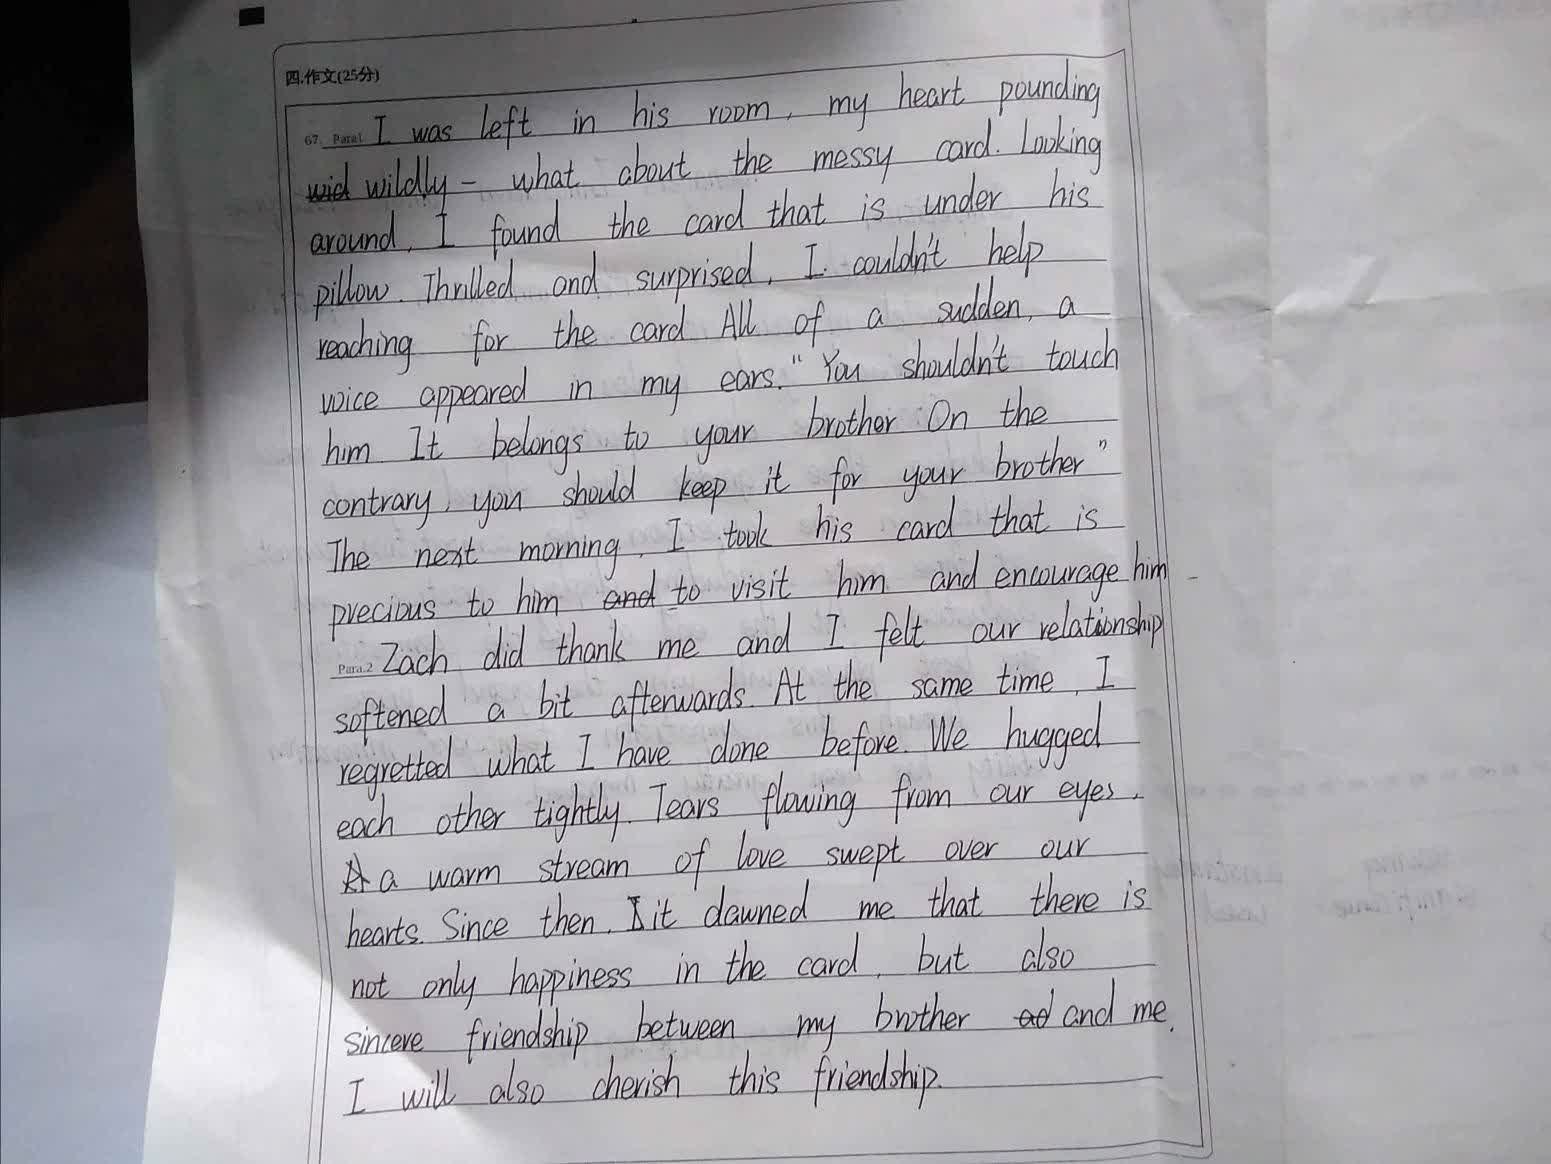 四.作文(25分)
67. Para1 I was left in his room, my heart pounding
wid wildly - what about the messy card. Looking
around, I found the card that is under his
pillow. Thrilled and surprised, I couldn't help
reaching for the card All of a sudden, a
voice appeared in my ears. "You shouldn't touch
him It belongs to your brother On the
contrary, you should keep it for your brother"
The next morning, I took his card that is
precious to him and to visit him and encourage him
Para.2 Zach did thank me and I felt our relationship
softened a bit afterwards. At the same time, I
regretted what I have done before. We hugged
each other tightly. Tears flowing from our eyes.
A a warm stream of love swept over our
hearts. Since then, I it dawned me that there is
not only happiness in the card, but also
sincere friendship between my brother ad and me.
I will also cherish this friendship.